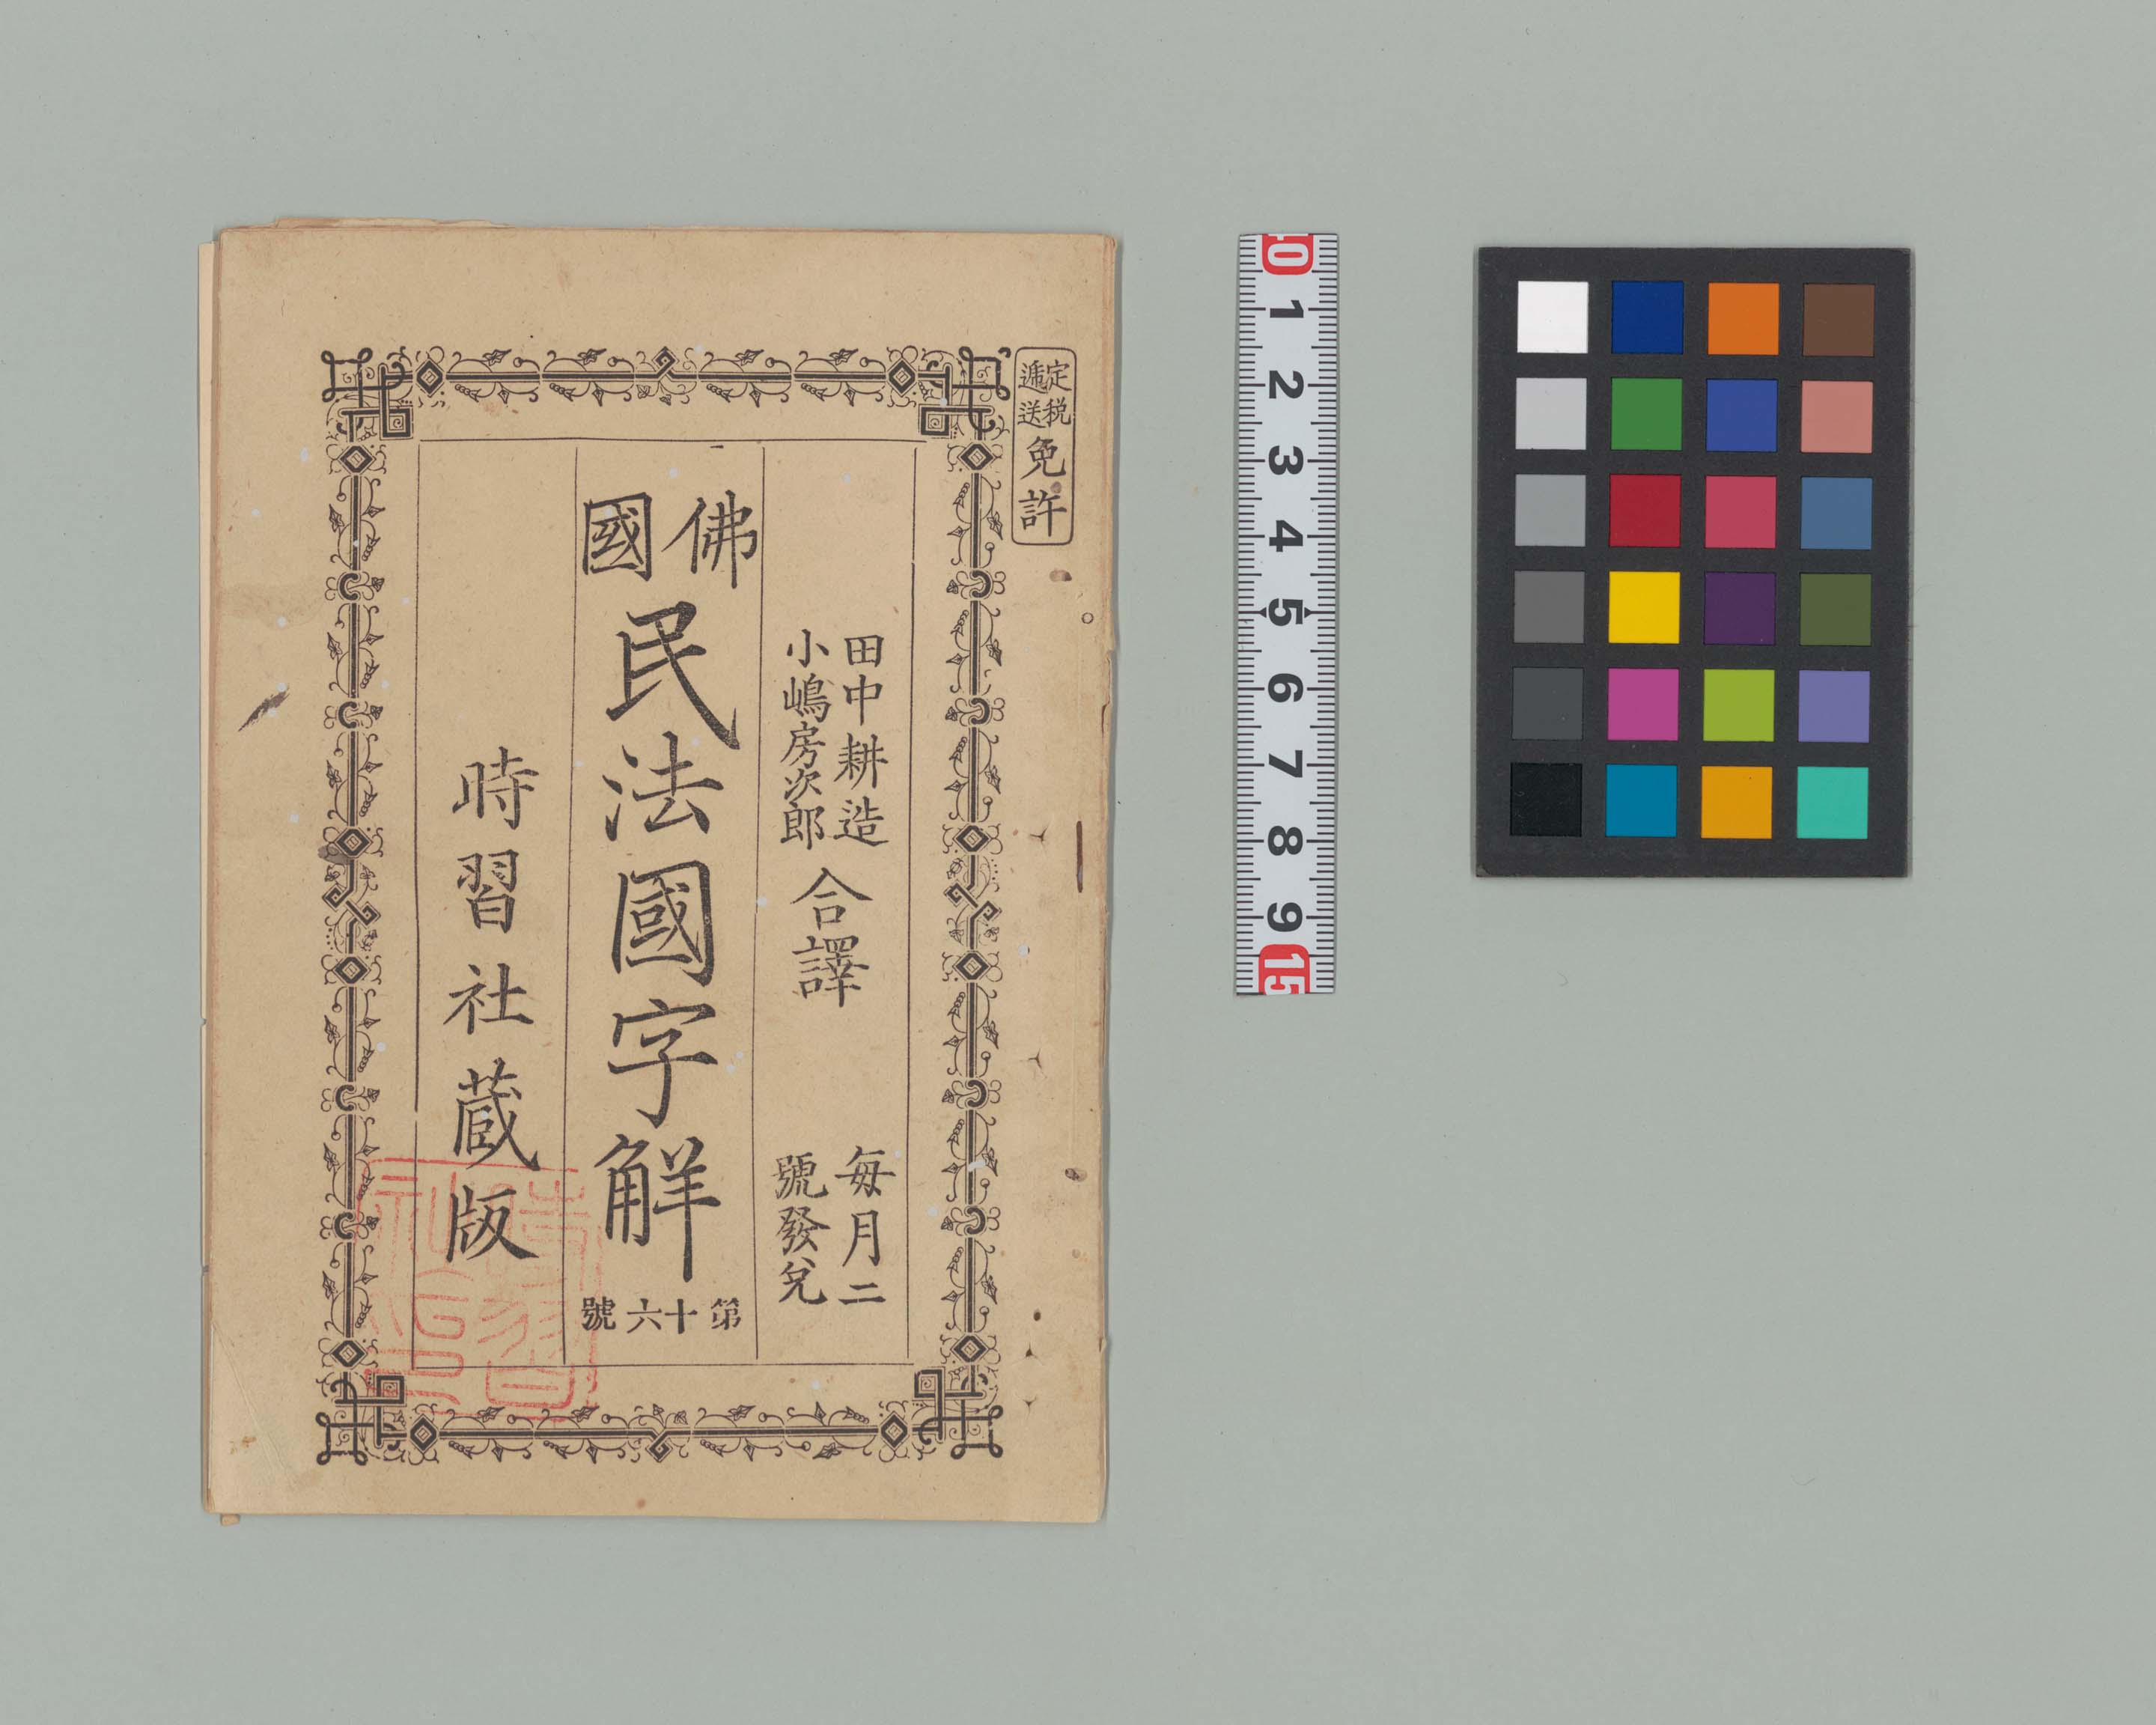 定税
遞送
免許
田中耕造
小嶋房次郎
合譯
毎月二
號發兌
佛國
民法國字解
第十六號
時習社蔵版
時習
社印
40 1 2 3 4 5 6 7 8 9 15